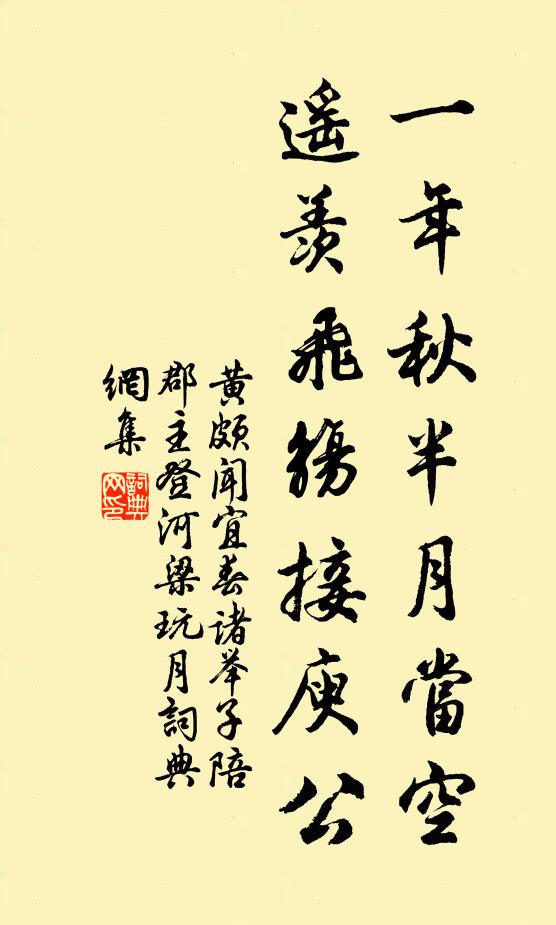 一年秋半月當空
遥羨飛觴接庾公
黄頗聞宜春諸举子陪
郡主登河梁玩月詞典
網集
詞典
网印